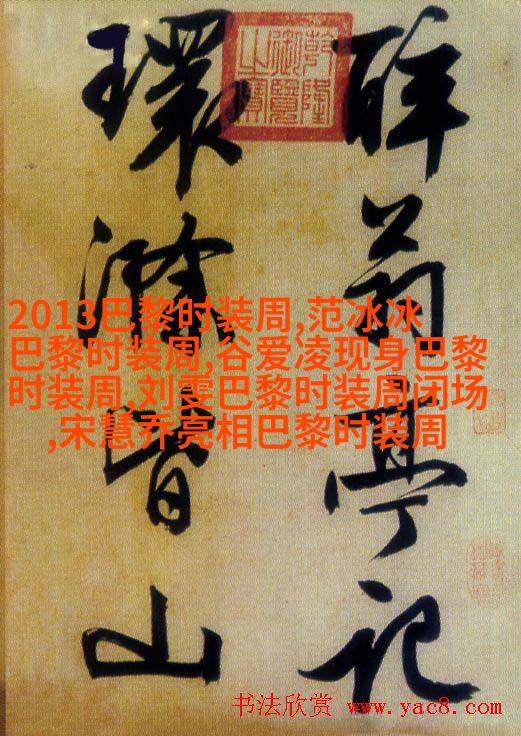 醉翁亭記
環滁皆山
乾隆
御覽
之寶
2013巴黎时装周,范冰冰
巴黎时装周,谷爱凌现身巴黎
时装周,刘雯巴黎时装周闭场
,宋慧乔亮相巴黎时装周
书法欣赏 www.yac8.com